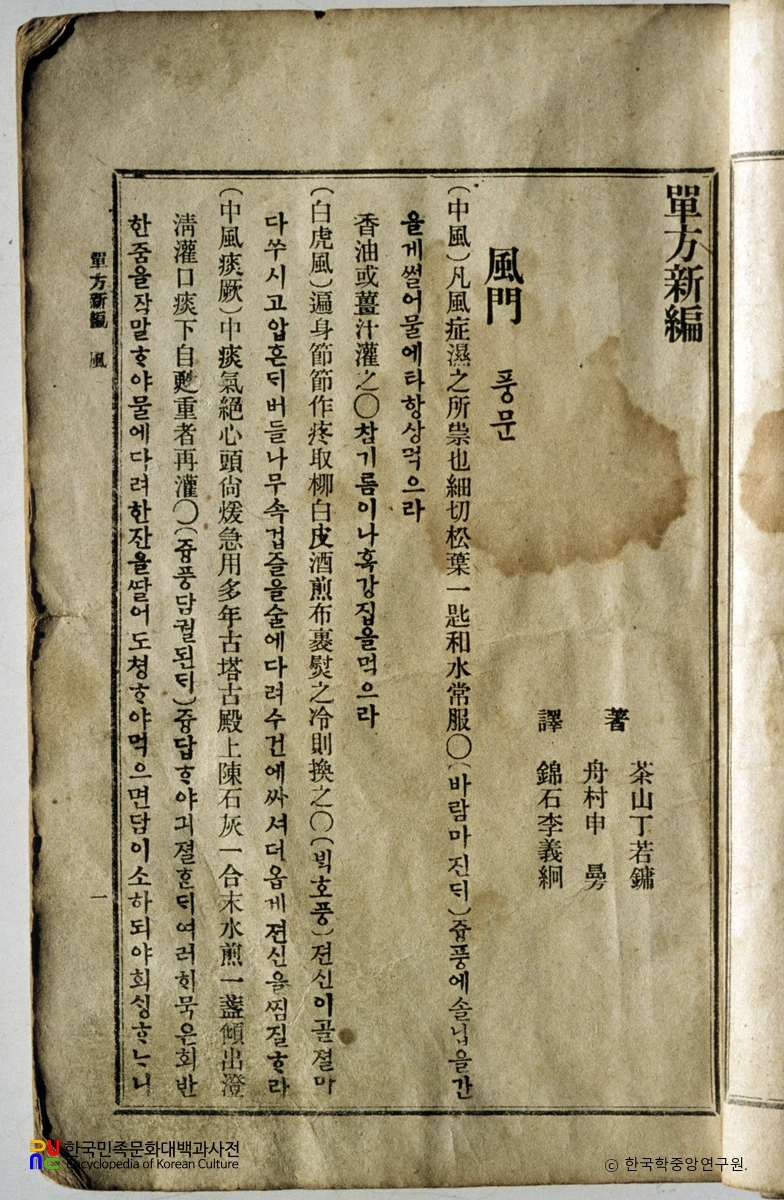 單方新編
茶山丁若鏞
著
舟村申曼
譯 錦石李義絅
風門 풍문
(中風)凡風症濕之所祟也細切松葉一匙和水常服〇(바람마진ᄃᆡ)즁풍에솔닙을간
을게썰어물에타항상먹으라
香油或薑汁灌之〇참기름이나혹강집을먹으라
(白虎風)遍身節節作疼取柳白皮酒煎布裹熨之冷則換之〇(ᄇᆡᆨ호풍)젼신이골졀마
다쑤시고압흔ᄃᆡ버들나무속겁즐을술에다려수건에싸셔더옵게젼신을찜질ᄒᆞ라
(中風痰厥)中痰氣絕心頭尙煖急用多年古塔古殿上陳石灰一合末水煎一盞傾出澄
淸灌口痰下自甦重者再灌〇(즁풍담궐된ᄃᆡ)즁답ᄒᆞ야긔졀ᄒᆞᆫᄃᆡ여러ᄒᆡ묵은회반
한줌을작말ᄒᆞ야물에다려한잔을ᄯᅡᆯ어도쳥ᄒᆞ야먹으면담이소하되야회ᄉᆡᆼᄒᆞᄂᆞ니
單方新編 風 一
한국민족문화대백과사전
Encyclopedia of Korean Culture
ⓒ 한국학중앙연구원.